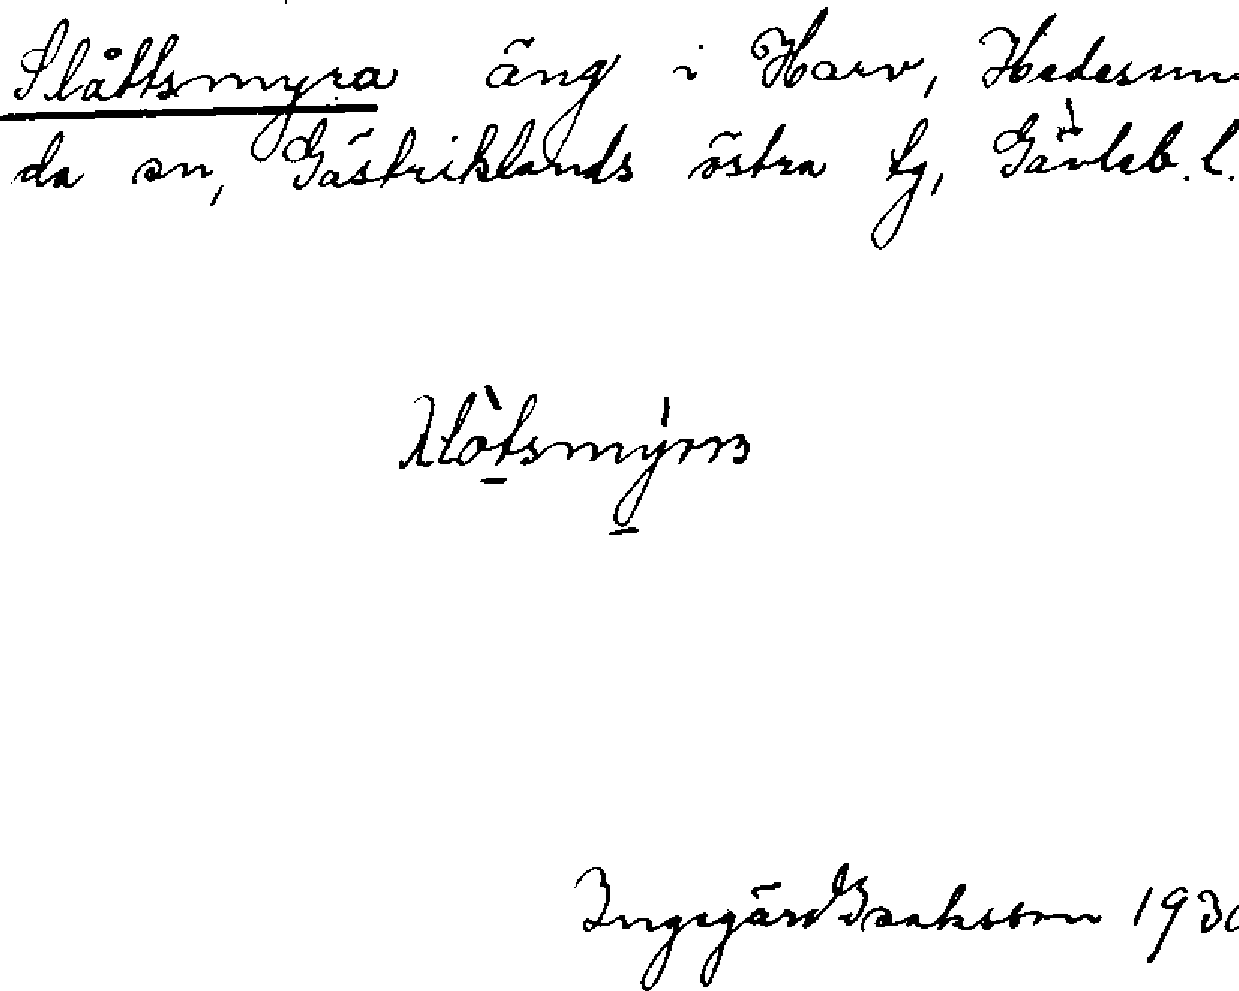 Slåttsmyra äng i Harv, Hedesun
da sn, Gästriklands östra tg, Gävleb. l.
Ingegärd Isaksson 193